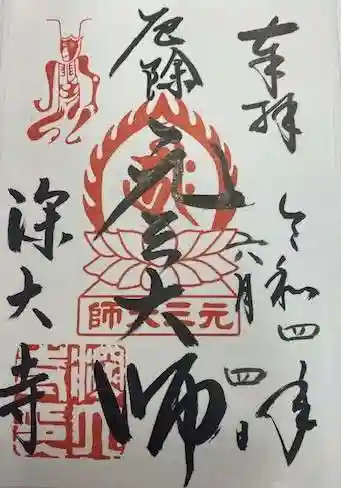 奉拝
令和四年
六月四日
厄除
元三大師
師大三元
深大寺